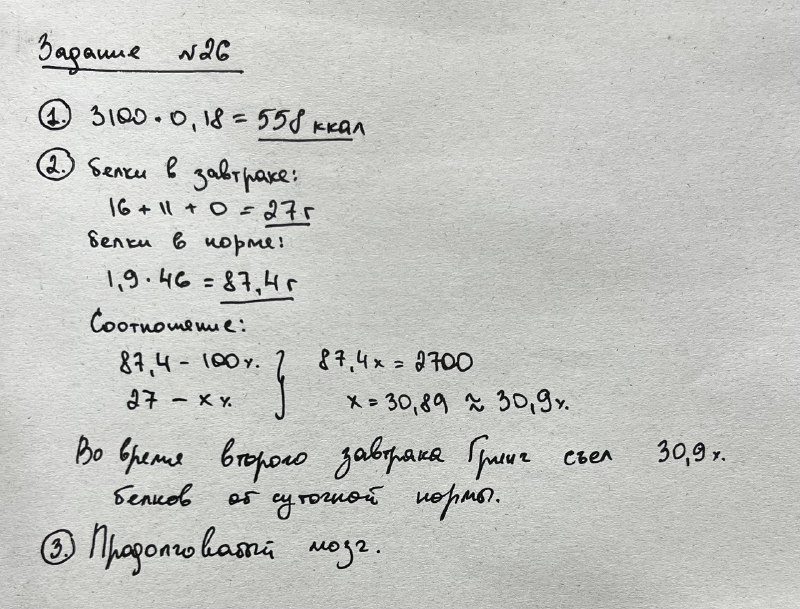 Задание №26
1. 3100 · 0,18 = 558 ккал
2. белки в завтраке:
16 + 11 + 0 = 27 г
белки в норме:
1,9 · 46 = 87,4 г
Соотношение:
87,4 – 100%. } 87,4x = 2700
27 – x %. x = 30,89 ≈ 30,9%.
Во время второго завтрака Гринг съел 30,9%.
белков от суточной нормы.
3. Продолговатый мозг.